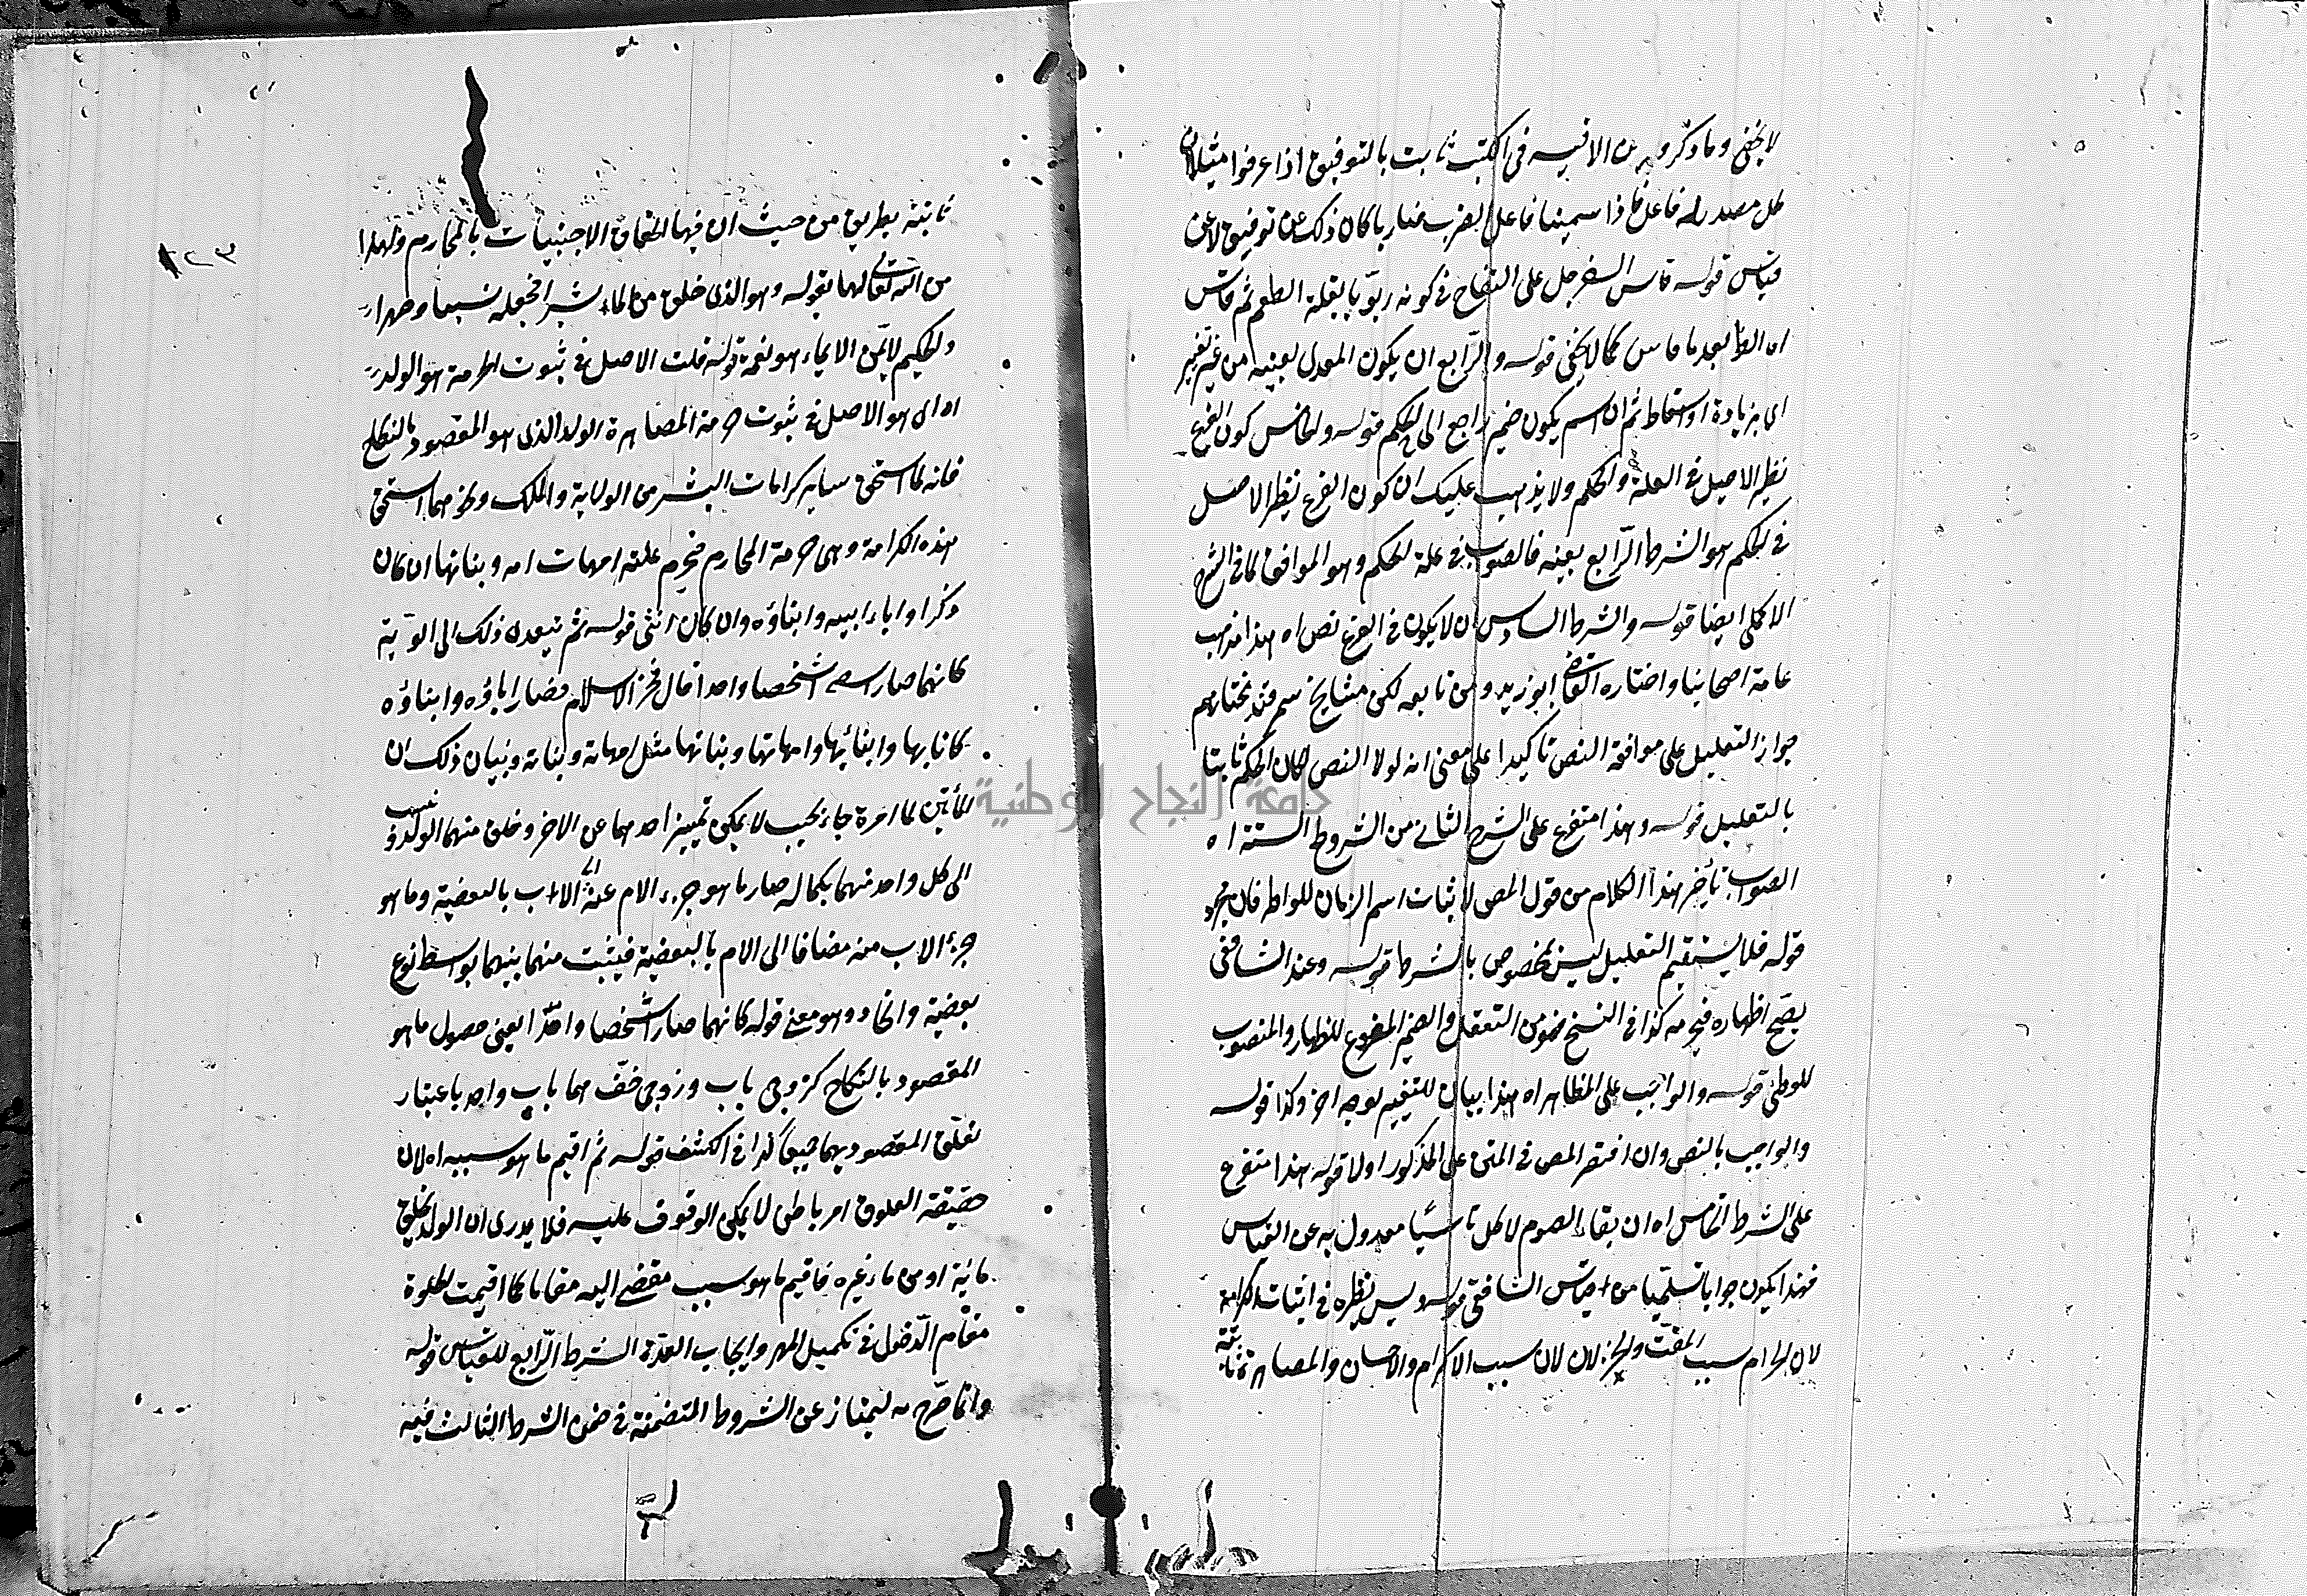 لا يخفى وما ذكروه من الاقيسه في الكتب ثابت بالتوقيف اذا عرفوا مثلا ان
كل مصدر له فاعل فاذا سمينا فاعل الضرب ضاربا كان ذلك عن توقيف لا عن
قياس قوله قاس السفرجل على التفاح في كونه ربويا بعلة الطعم ثم قاس
اه الظ بعد ما قاس كما لا يخفى قوله والرابع ان يكون المعدى بعينه من غير تغيير
اى بزيادة او اسقاط ثم ان اسم يكون ضمير راجع الى الحكم قوله والخامس كون الفرع
نظير الاصل في العلة والحكم ولا يذهب عليك ان كون الفرع نظير الاصل
في الحكم هو الشرط الرابع بعينه فالصوب في علة الحكم وهو الموافق لما في الشرح
الاكملى ايضا قوله والشرط السادس ان لا يكون في الفرع نص اه هذا مذهب
عامة اصحابنا واختاره القاضى ابو زيد ومن تابعه لكن مشايخ سمرقند مختارهم
جواز التعليل على موافقة النص تاكيدا على معنى انه لولا النص لكان الحكم ثابتا
بالتعليل قوله وهذا متفرع على الشرط الثانى من الشروط الستة اه
الصواب تأخير هذا الكلام من قول المص لاثبات اسم الزنا للواطه فان مجرد
قوله فلا يستقيم التعليل ليس مخصوص بالشرط قوله وعند الشافعى
يصح اظهاره فيحرمه كذا في النسخ فهو من التفعيل والضمير المرفوع للظهار والمنصوب
للوطئ قوله والواجب على المظاهر اه هذا بيان للتغيير لوجه اخر وكذا قوله
والواجب بالنص وان اقتصر المص في المتن على المذكور اولا قوله هذا متفرع
على الشرط الخامس اه ان بقاء الصوم لاكل ناسيا معدول به عن القياس
فهذا يكون جوابا تسليميا من قياس الشافعى قوله وليس نظيره في اثبات الكرامة
لان الحرام سبب المقت والخذلان لان سبب الاكرام والاحسان والمصاهرة ثابتة
ثابتة بطريق من حيث ان فيها الحاق الاجنبيات بالمحارم ولهذا
من الله تعالى بها بقوله وهو الذى خلق من الماء بشرا فجعله نسبا وصهرا
والحكيم لا يمن الا بما هو نعمة قوله قلت الاصل في ثبوت الحرمة هو الولد
اه اى هو الاصل في ثبوت حرمة المصاهرة الولد الذى هو المقصود بالنكاح
فانه لما استحق سائر كرامات البشر من الولاية والملك وغيرهما استحق
هذه الكرامة وهى حرمة المحارم فيحرم عليه امهات امه وبناتها ان كان
ذكرا واباء ابيه وابناؤه وان كان انثى قوله ثم تتعدى ذلك الى ابويه
كانهما صارا شخصا واحدا قال فخر الاسلام فصار اباؤه وابناؤه
كابائها وابنائها وامهاتها وبناتها مثل امهاته وبناته وبيان ذلك ان
المائين لما امتزجا بحيث لا يمكن تمييز احدهما عن الاخر وخلق منهما الولد ونسب
الى كل واحد منهما بكماله صار ما هو جزء الام منه الى الاب بالبعضية وما هو
جزء الاب منه مضافا الى الام بالبعضية فيثبت منهما بينهما بواسطة نوع
بعضية واتحاد وهو معنى قوله كانهما صارا شخصا واحدا يعنى حصول ما هو
المقصود بالنكاح كزوجى باب وزوجى خف هما باب واحد باعتبار
تعلق المقصود بهما جميعا كذا في الكشف قوله ثم اقيم ما هو سببه اه لان
حقيقة العلوق امر باطن لا يمكن الوقوف عليه فلا يدرى ان الولد يخلق
مائية او من ماء غيره فاقيم ما هو سبب مفضى اليه مقاما كما اقيمت الخلوة
مقام الدخول في تكميل المهر وايجاب العدة الشرط الرابع للقياس قوله
وانما صرح به ليمتاز عن الشروط المتضمنة في ضمن الشرط الثالث فيه
١٢٣
جامعة النجاح الوطنية